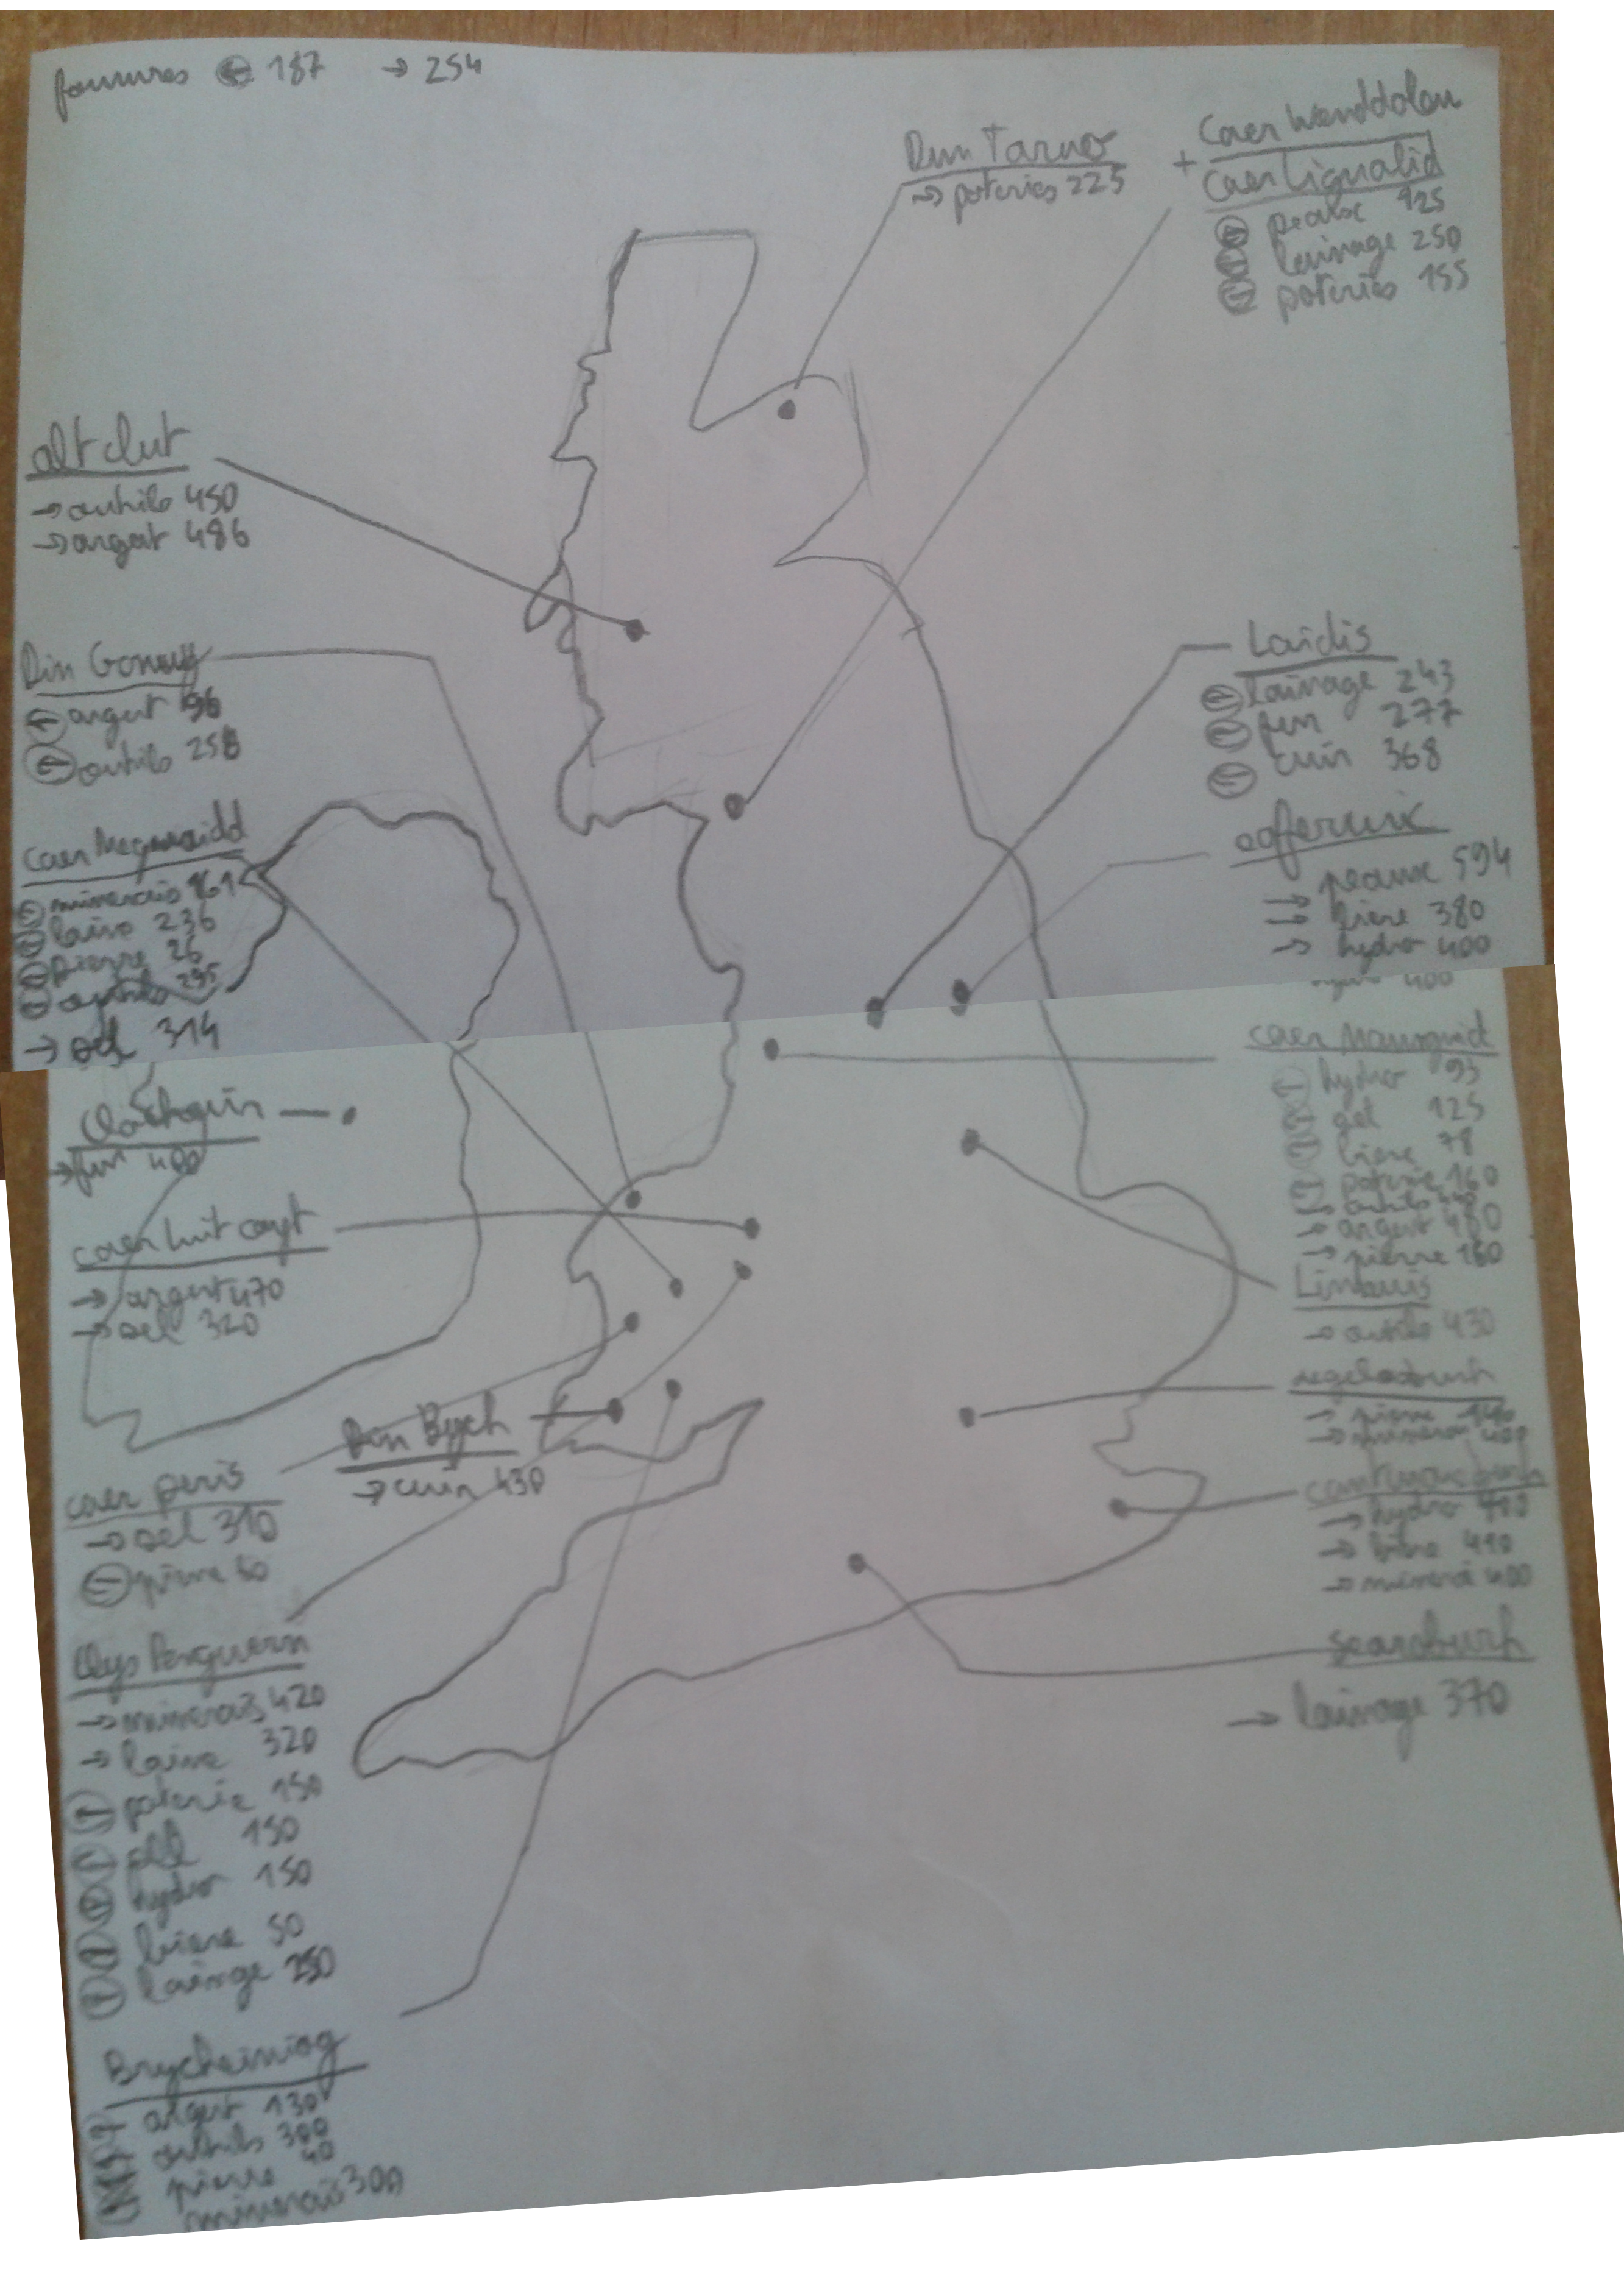 fourrures ← 187 → 254
Dun Tarwo
→ poteries 225
+ Caer Wenddoleu
Caer Ligualid
← peaux 125
← lainage 250
← poteries 155
alt clut
→ outils 450
→ argent 486
Din
← argent 96
← outils 258
Caer
← minerais 161
← laine 236
← pierre 26
← outils 295
→ sel 314
→ fer 400
caer luit coyt
→ argent 470
→ sel 320
Din Bych
→ cuir 430
caer peris
→ sel 310
← pierre 60
Llys Penguern
→ minerais 420
→ laine 320
← poterie 150
← sel 150
← hydro 150
← biere 50
← lainage 250
Brycheiniog
argent 130
outils 300
pierre 40
minerais 300
Loidis
← lainage 243
← fer 277
← cuir 368
eoferwic
→ peaux 594
→ biere 380
→ hydro 400
caer Maunguid
← hydro 93
← 125
← biere 78
← poterie 160
→ outils
→ argent 480
→ pierre 160
Linnuis
→ outils 430
→ pierre 140
→ minerai 400
→ hydro 410
→ biere 410
→ minerai 400
Searoburh
→ lainage 370